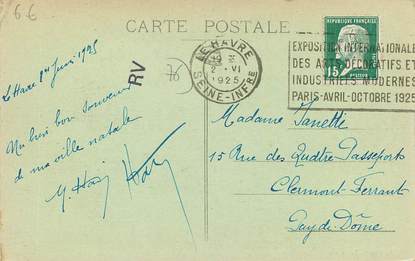 66
CARTE POSTALE
RV
LE HAVRE
2 - VI
1925
SEINE-INFRE
RÉPUBLIQUE FRANÇAISE
15c
EXPOSITION INTERNATIONALE
DES ARTS DÉCORATIFS ET
INDUSTRIELS MODERNES
PARIS-AVRIL-OCTOBRE 1925
Le Havre 1er Juin 1925
Un bien bon souvenir
de ma ville natale
Madame Janetti
15 Rue des Quatre Passeports
Clermont Ferrant
Puy de Dôme